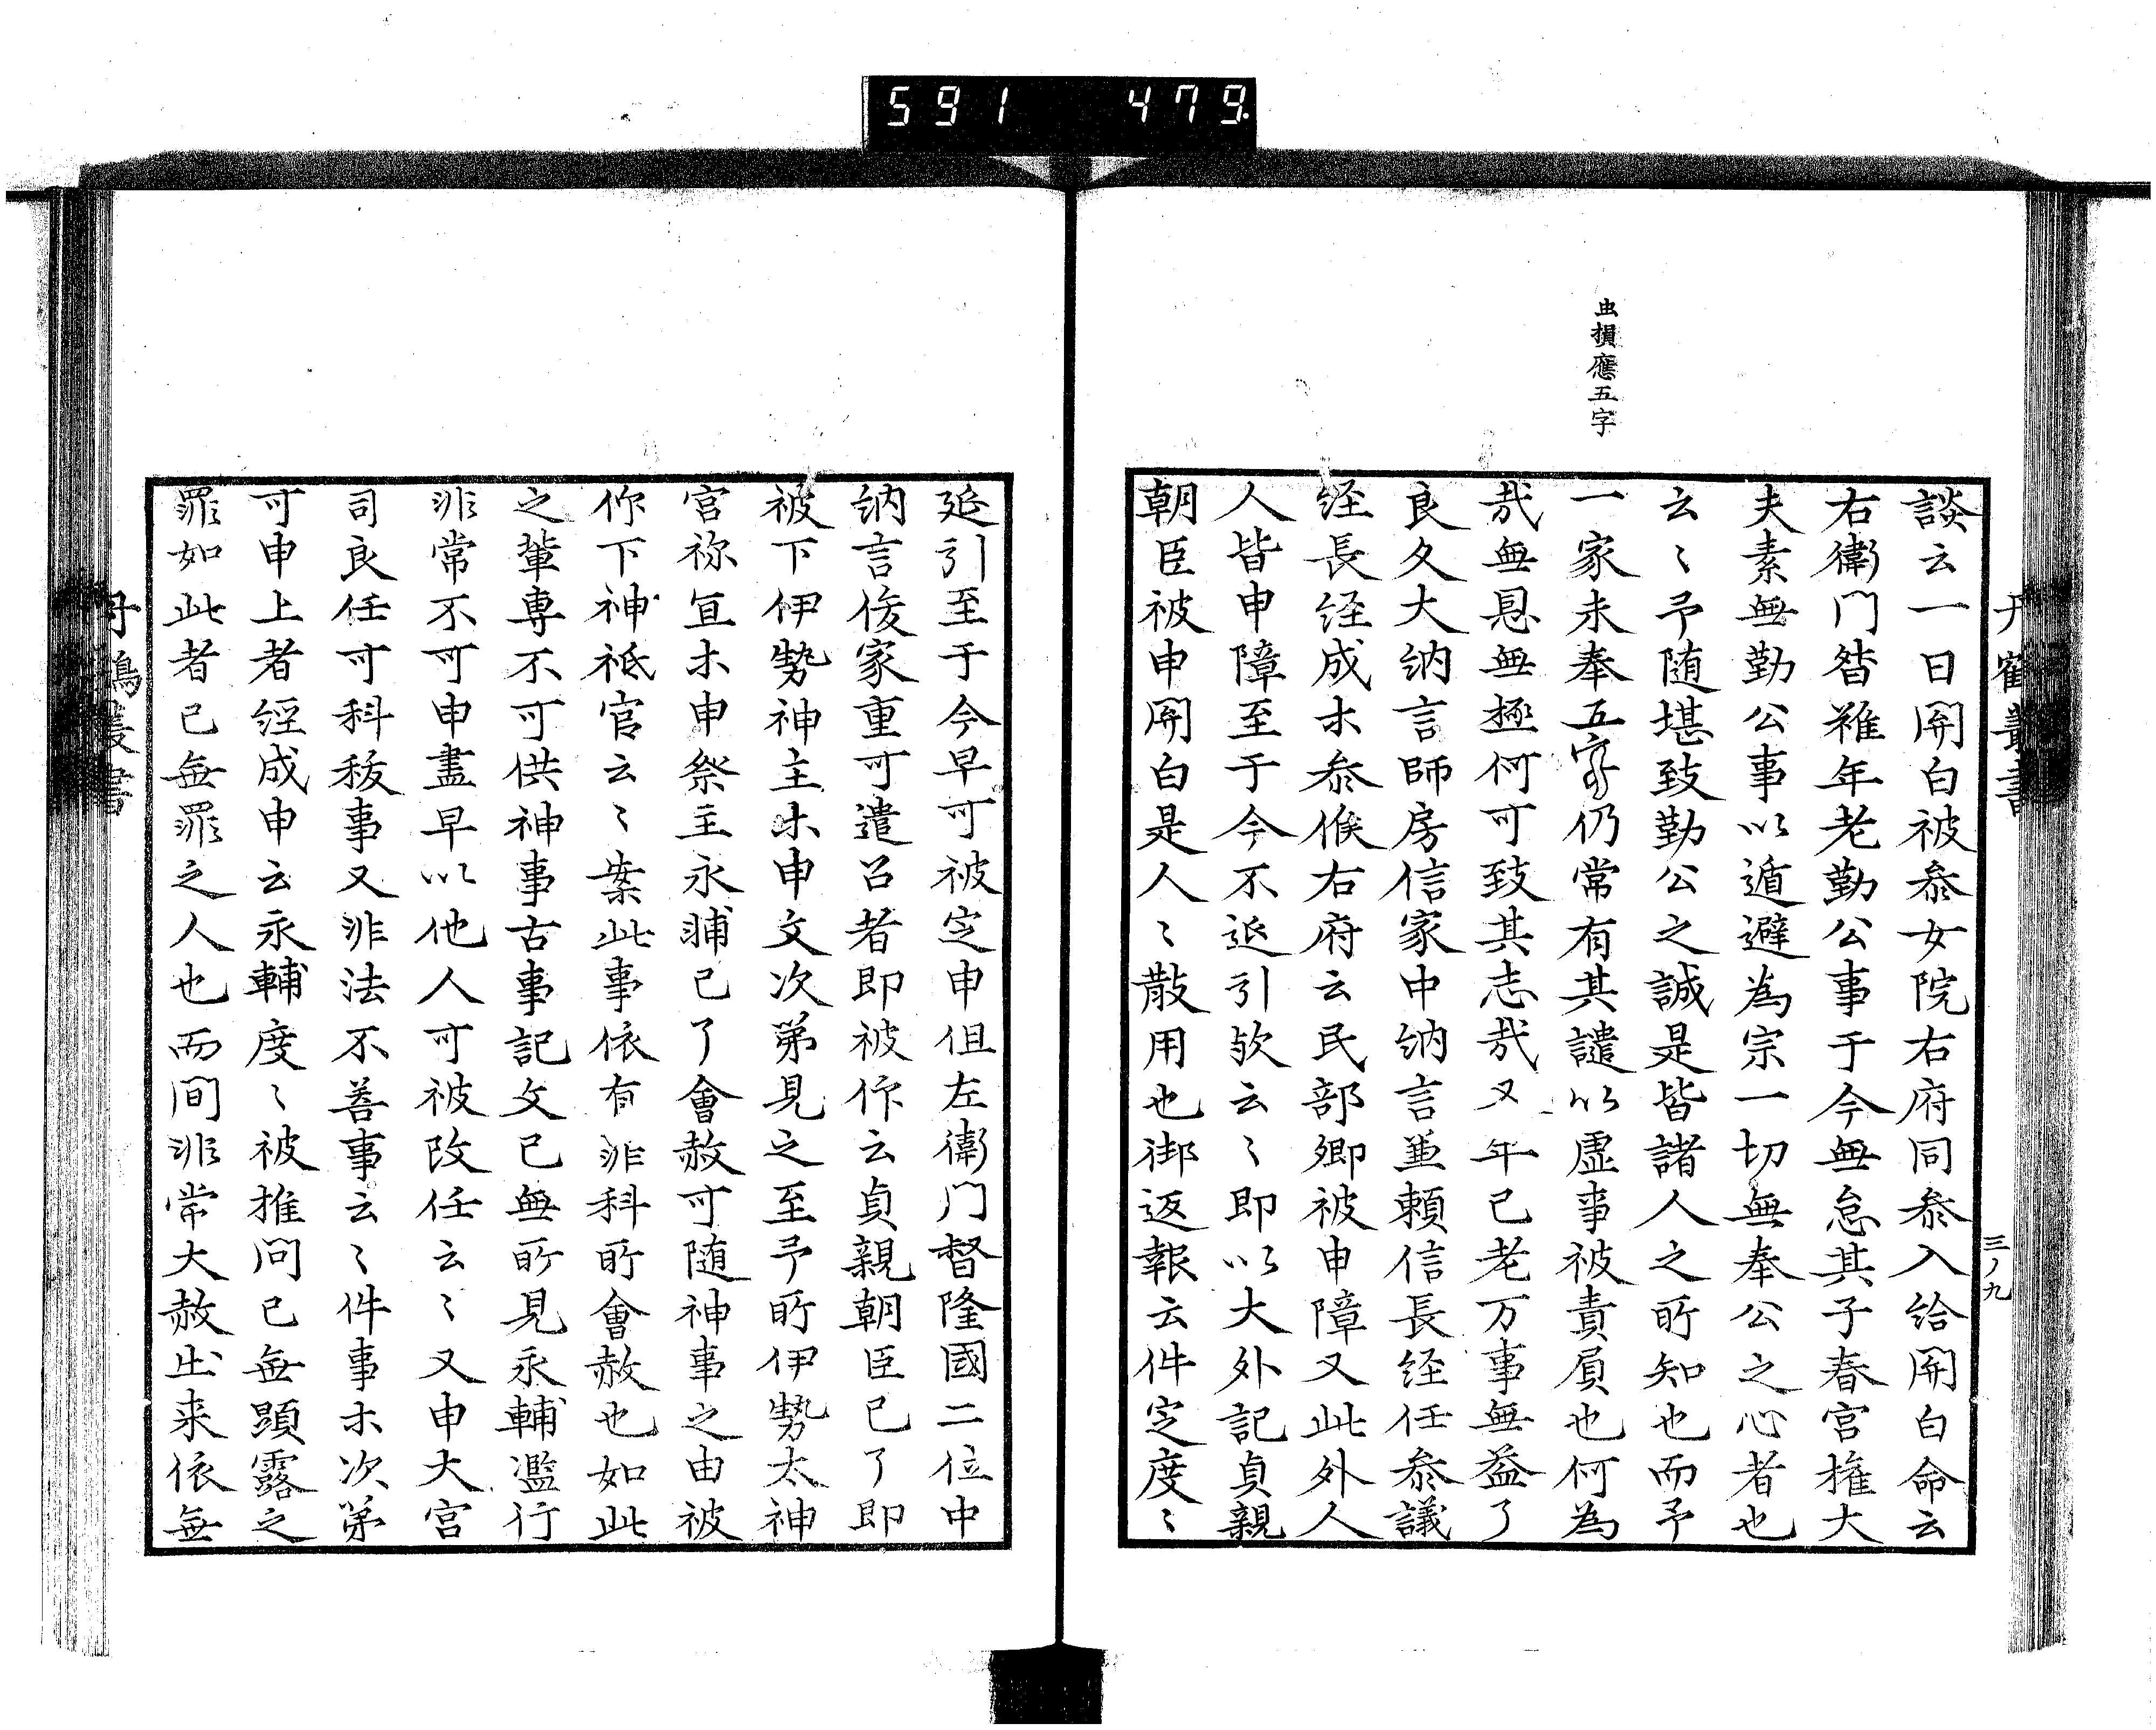 591 479
虫損應五字
談云一日関白被参女院右府同参入給関白命云
右衛門督雖年老勤公事于今無怠其子春宮權大
夫素無勤公事以遁避為宗一切無奉公之心者也
云〻予随堪致勤公之誠是皆諸人之所知也而予
一家未奉五字仍常有其譴以虚事被責屓也何為
哉無恩無極何可致其志哉又年已老万事無益了
良久大納言師房信家中納言兼頼信長経任参議
経長経成木参候右府云民部卿被申障又此外人
人皆申障至于今不延引欤云〻即以大外記貞親
朝臣被申関白是人〻散用也御返報云件定度〻
三ノ九
延引至于今早可被定申但左衛門督隆國二位中
納言俊家重可遣召者即被仰云貞親朝臣已了即
被下伊勢神主木申文次第見之至予所伊勢太神
宮祢冝木申祭主永輔已了會赦可随神事之由被
仰下神祗官云〻案此事依有非科所會赦也如此
之輩専不可供神事古事記文已無所見永輔濫行
非常不可申盡早以他人可被改任云〻又申大宮
司良任可科秡事又非法不善事云〻件事木次第
可申上者経成申云永輔度〻被推問已無顕露之
罪如此者已無罪之人也而間非常大赦出来依無